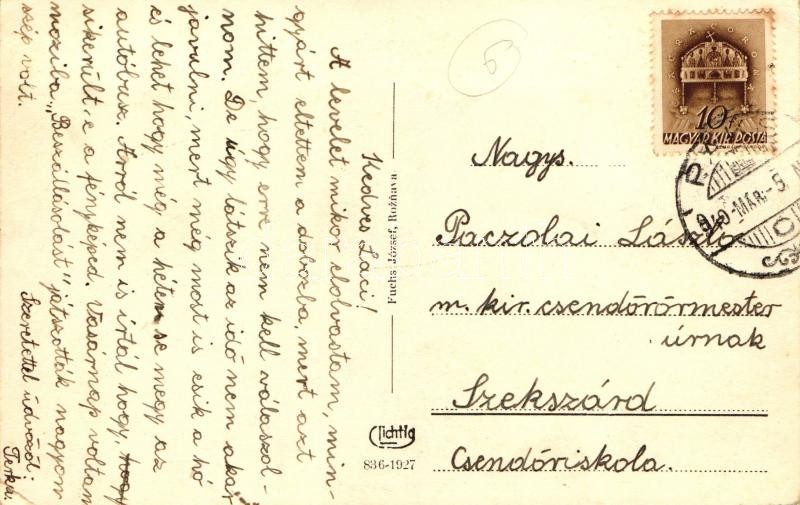 Kedves Laci!
A levelet mikor elolvastam, min-
gyárt eltettem a dobozba, mert azt
hittem, hogy erre nem kell válaszol-
nom. De úgy látszik az idő nem akar
javulni, mert még most is esik a hó
és lehet hogy még a héten se megy az
autóbusz. Arról nem is írtál hogy, hogy
sikerült-e a fényképed. Vasárnap voltam
moziba, "Beszállásolást" játszották nagyon
szép volt.
Szeretettel üdvözöl:
Terka.
Fuchs József, Rožňava
Lichtig
836-1927
53
MAGYAR KIR. POSTA
10f
940 MÁR. -5.
Nagys.
Paczolai László
m. kir. csendőrőrmester
úrnak
Szekszárd
Csendőriskola.